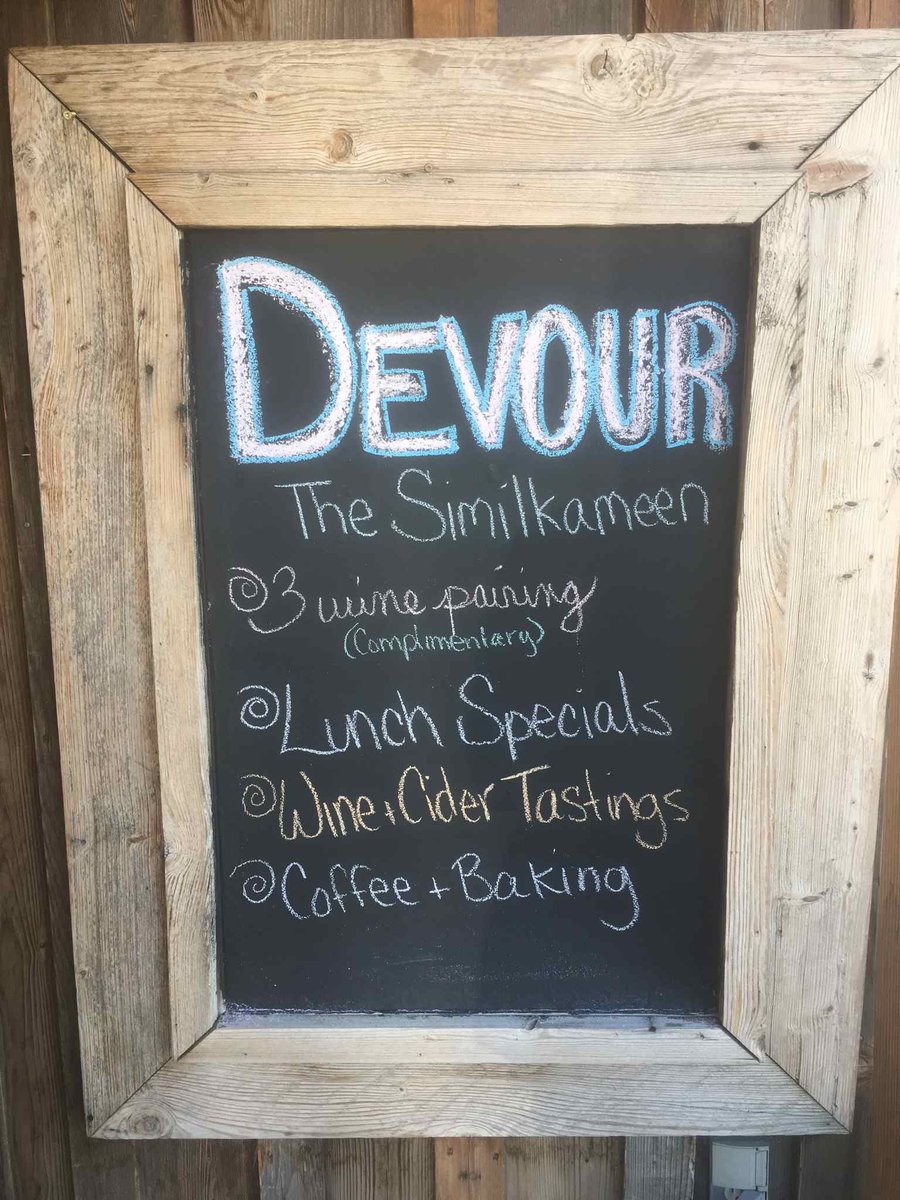 DEVOUR
The Similkameen
3 wine pairing
(Complimentary)
Lunch Specials
Wine + Cider Tastings
Coffee + Baking